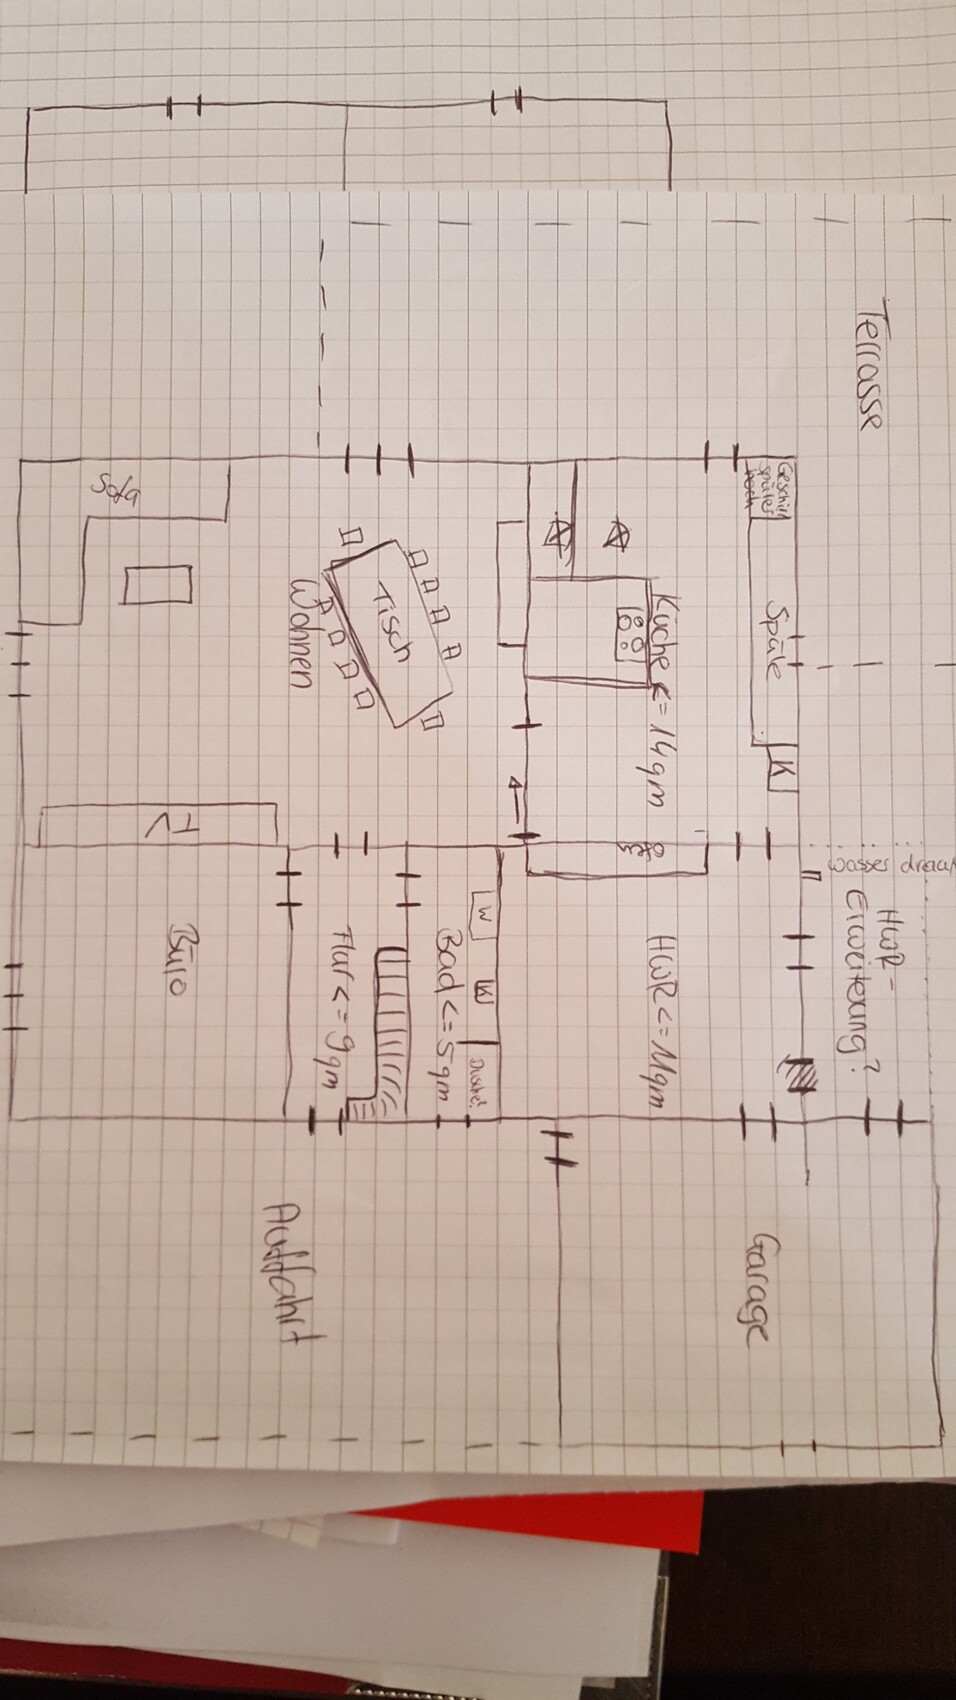 Terrasse
Geschirr
spüler
hoch
Spüle
K
Küche <= 14qm
Sofa
Tisch
Wohnen
TV
wasser drauß
HWR-
Erweiterung?
HWR <= 11qm
W
Bad <= 5qm
Dusche
Flur <= 9qm
Büro
Garage
Auffahrt